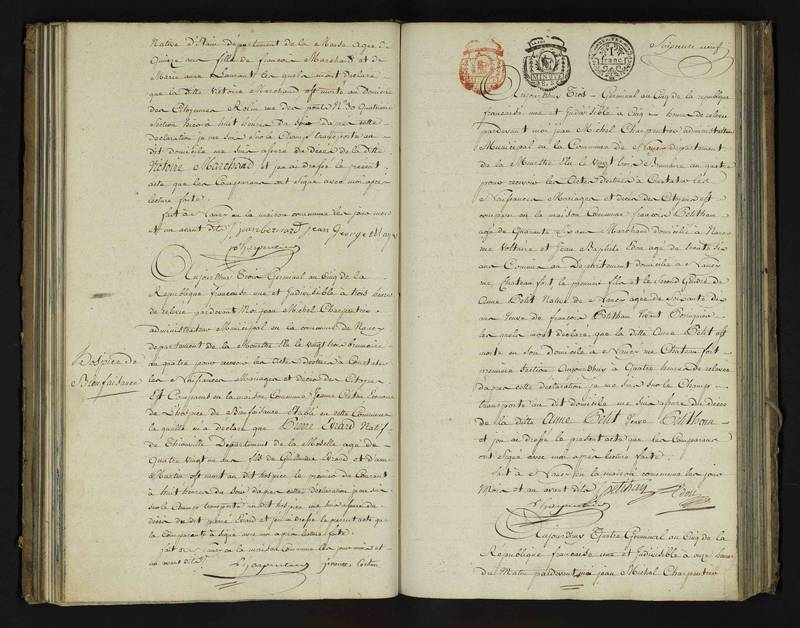 Native d'Etain département de la Meuse agée de
Quinze ans fille de francois Marchand et de
Marie anne Laurent les quels m'ont déclaré
que la dite Victoire Marchand est morte au domicile
des Citoyennes rue des ponts N. 30 Quatrieme
Section hier à huit heures du Soir d'apres cette
déclaration je me suis sur le Champ transporté au
dit domicile me suis assuré du décès de la dite
Victoire Marchand et j'ai dressé le présent
acte que les Comparans ont signé avec moi apres
lecture faite.
fait à Nancy en la maison commune les jour mois
et an avant dits jean bernard jean George
Charpentier
Aujourd'huy Trois Germinal an Cinq de la
République francaise une et Indivisible à trois heures
de relevée pardevant Moi jean Michel Charpentier
administrateur Municipal en la commune de Nancy
département de la Meurthe Elu le vingt trois brumaire
an quatre pour recevoir les actes destinés à Constater
les Naissances Mariages et décès des Citoyens
Est Comparu en la maison Commune Jeanne
de L'hospice de Bienfaisance établi en cette Commune
la quelle m'a déclaré que Pierre Evrard Natif
de Thionville Département de la Moselle agé de
Quatre vingt un ans fils de Guillaume Evrard et d'anne
Martin est mort au dit hospice le premier du Courant
à huit heures du Soir d'apres cette déclaration je me suis
sur le Champ transporté au dit hospice me suis assuré du
décès du dit pierre Evrard et j'ai dressé le présent acte que
la Comparante à signé avec moi apres lecture faite.
fait à Nancy en la maison Commune les jour mois et
an avant dits
Charpentier
Hospice de
Bienfaisance
Soixante neuf
MINUTE
1 franc
Aujourd'huy Trois Germinal an Cinq de la republique
francaise une et Indivisible à Cinq heures de relevée
pardevant moi jean Michel Charpentier administrateur
Municipal en la Commune de Nancy département
de la Meurthe Elu le vingt trois Brumaire an quatre
pour recevoir les Actes destinés à Constater les
Naissances Mariages et décès des Citoyens est
comparu en la maison Commune francois Petithan
agé de Quarante Six ans Marchand domicilié à Nancy
rue Voltaire et Jean Baptiste Edou agé de trente six
ans Commis au Département domicilié à Nancy
rue Chateau fort, le premier fils et le second Gendre de
Anne Petit Native de Nancy agée de Soixante
ans veuve de francois Petithan vivant
les quels m'ont déclaré que la dite Anne Petit est
morte en son domicile à Nancy rue Chateau fort
premiere Section Aujourd'huy à Quatre heures de relevée
d'apres cette déclaration je me suis sur le Champ
transporté au dit domicile me suis assuré du décès
de la dite Anne Petit veuve Petithan
et j'ai dressé le présent acte que les Comparans
ont signé avec moi après lecture faite.
fait à Nancy en la maison commune les jour
Mois et an avant dits Petithan Edou
Charpentier
Aujourd'huy Quatre Germinal an Cinq de la
République francaise une et Indivisible à onze heures
du Matin pardevant moi jean Michel Charpentier